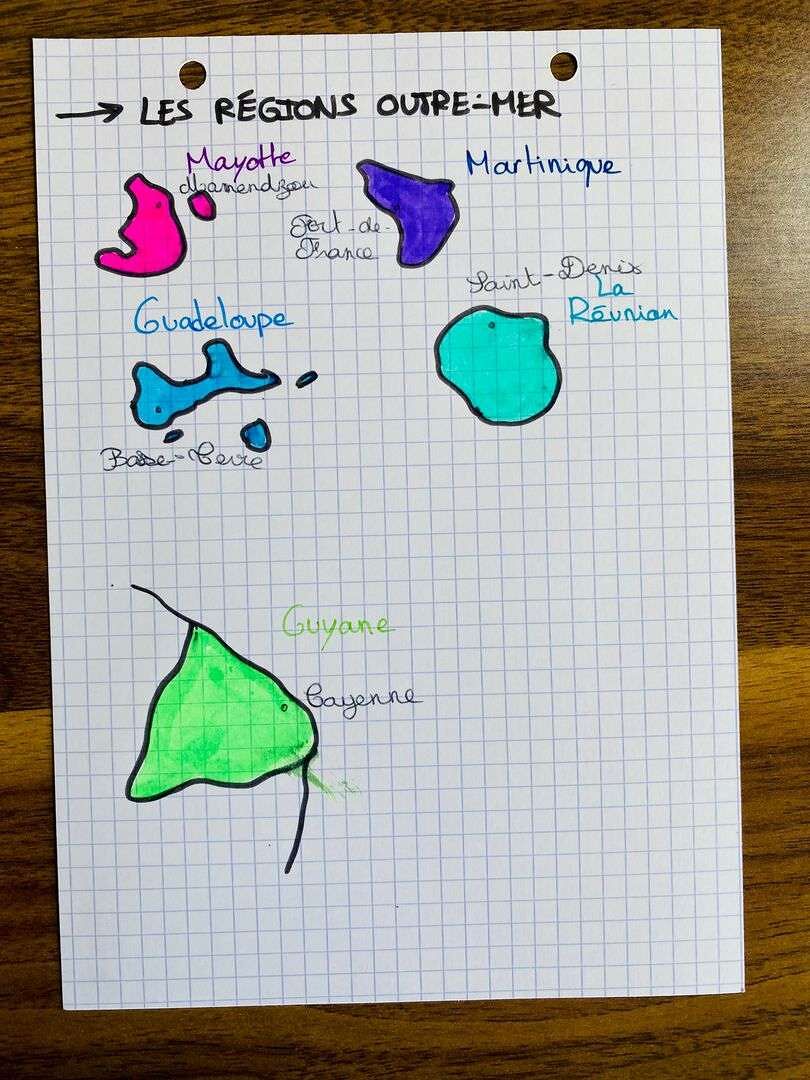 → LES RÉGIONS OUTRE-MER
Mayotte
Mamendzou
Martinique
Fort-de-
France
Saint-Denis
La
Réunion
Guadeloupe
Basse-Terre
Guyane
Cayenne